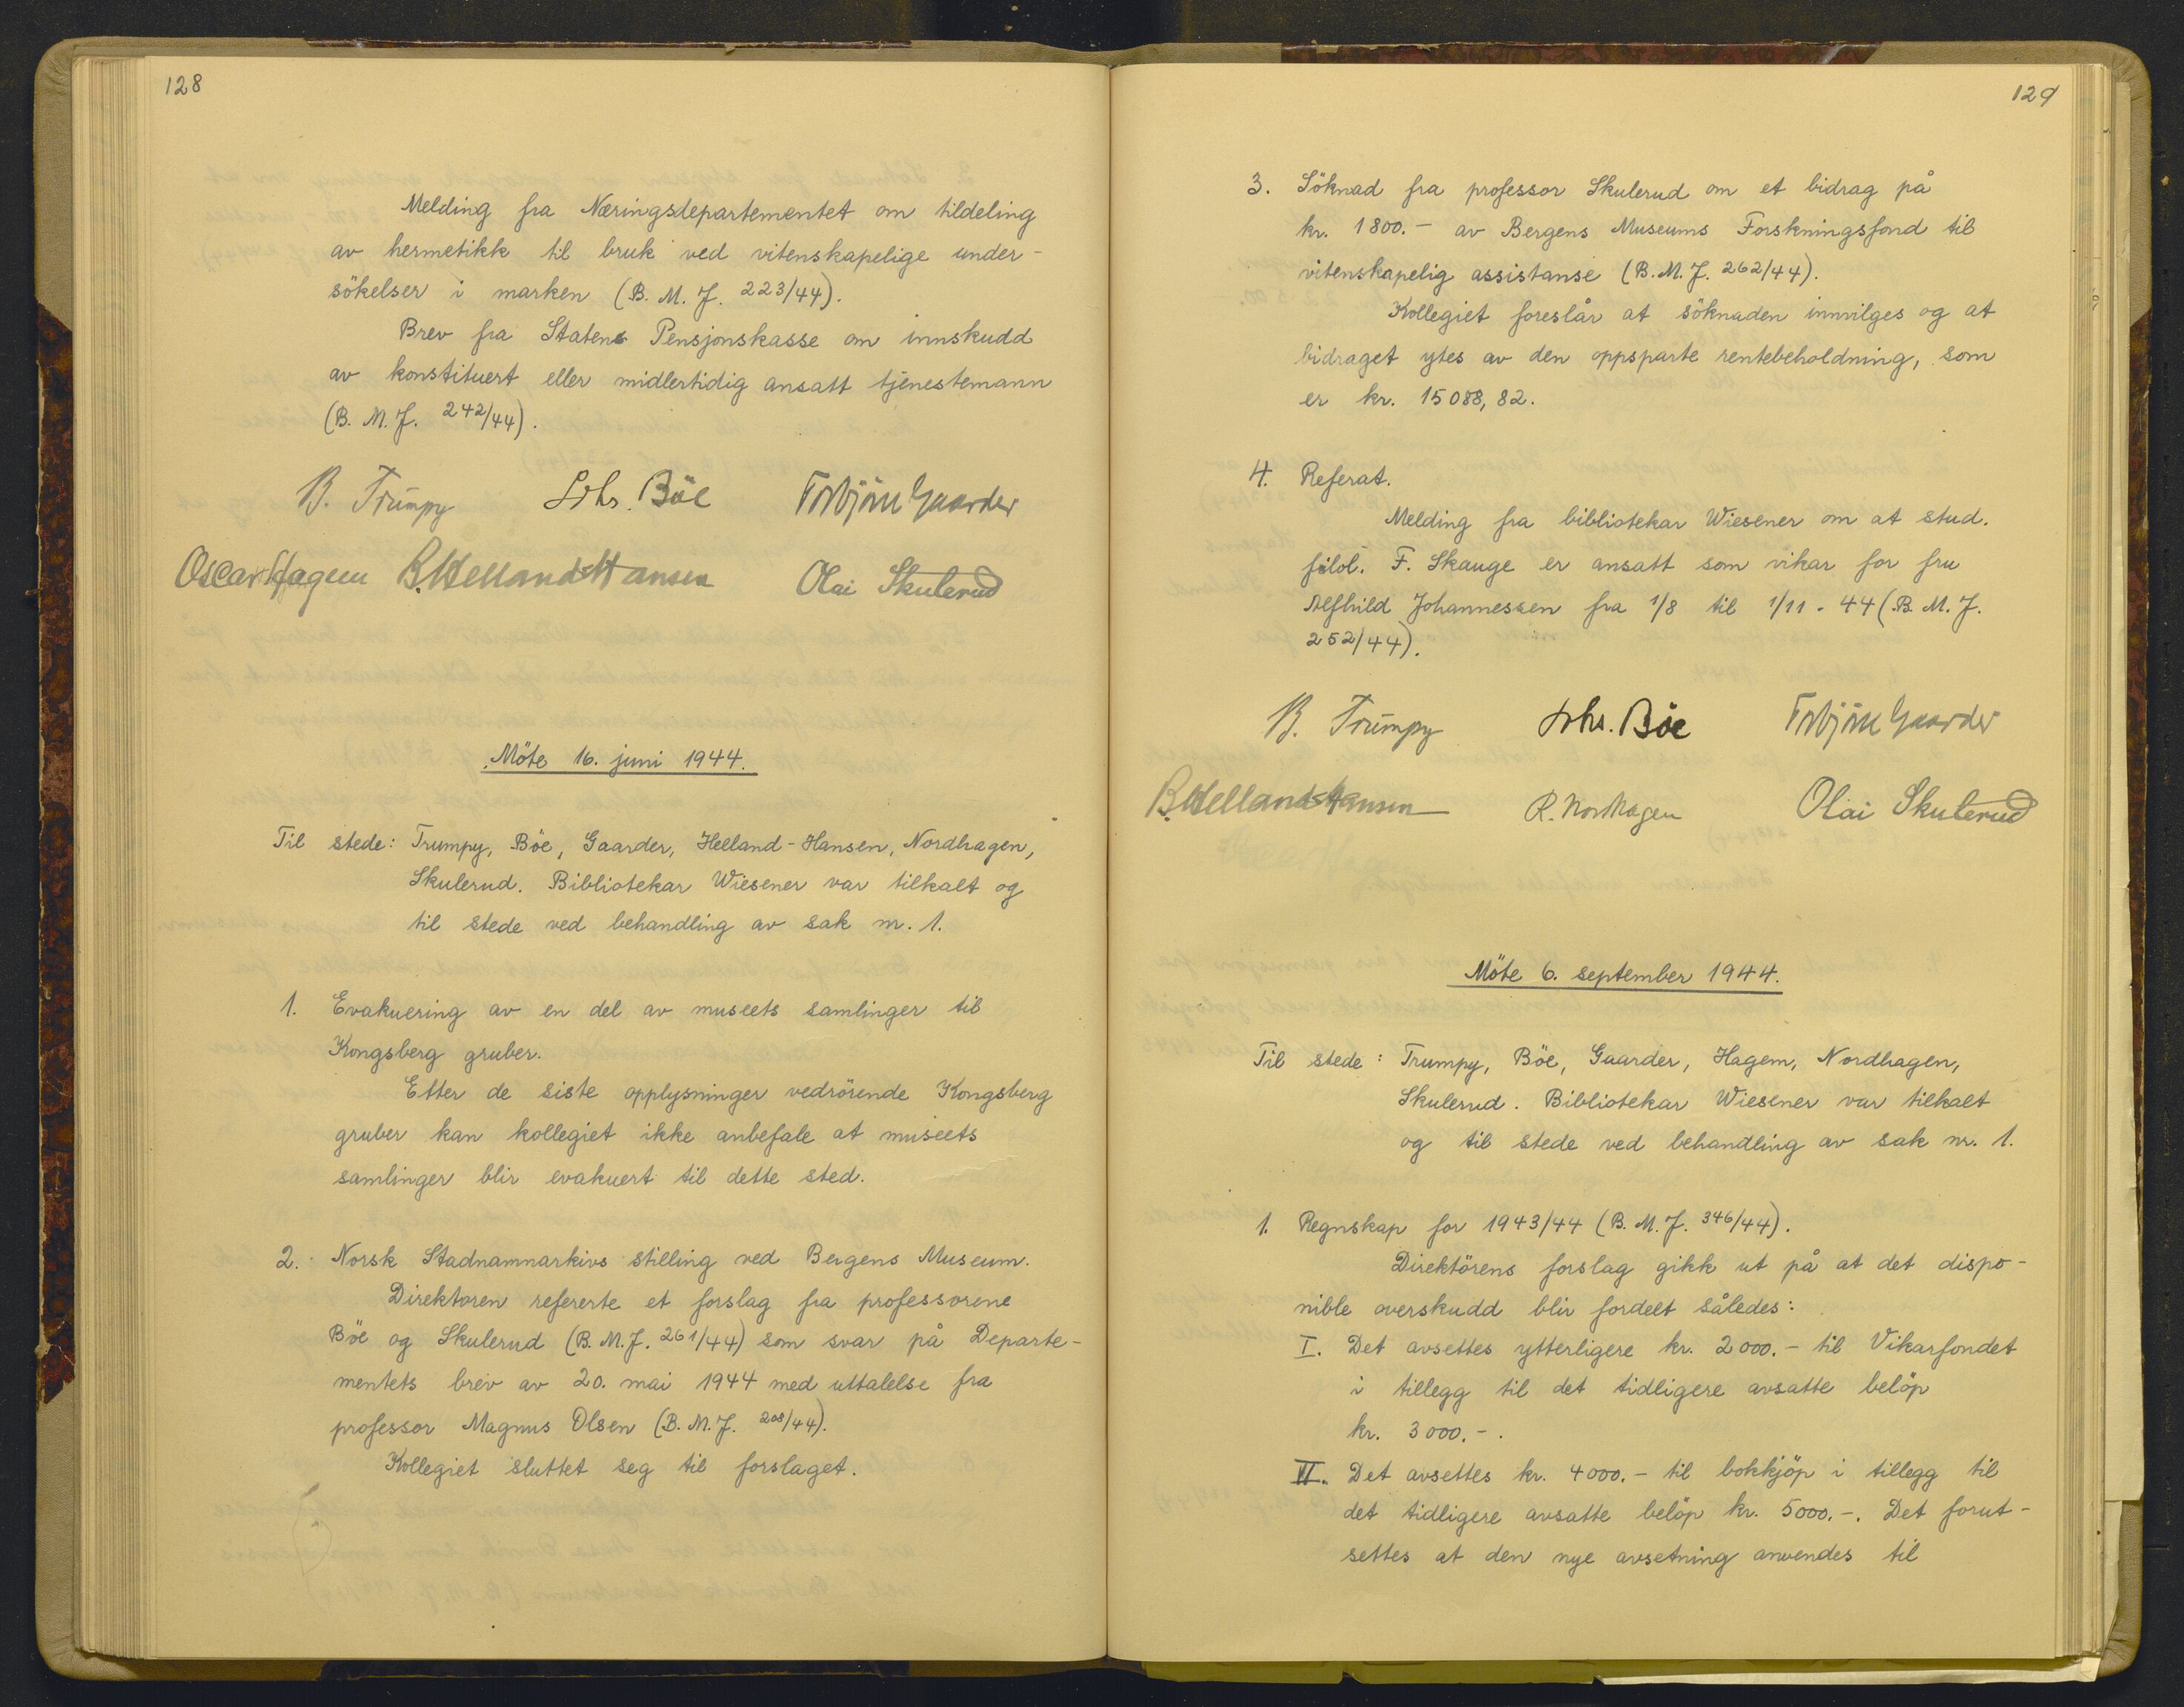 128
Melding fra Næringsdepartementet om tildeling
av hermetikk til bruk ved vitenskapelige under-
sökelser i marken (B. M. J. 223/44).
Brev fra Statens Pensjonskasse om innskudd
av konstituert eller midlertidig ansatt tjenestemann
(B. M. J. 242/44).
B. Trumpy Johs. Böe Torbjörn Gaarder
Oscar Hagem B. Helland-Hansen Olai Skulerud
Möte 16. juni 1944.
Til stede: Trumpy, Böe, Gaarder, Helland-Hansen, Nordhagen,
Skulerud. Bibliotekar Wiesener var tilkalt og
til stede ved behandling av sak nr. 1.
1. Evakuering av en del av museets samlinger til
Kongsberg gruber.
Etter de siste opplysninger vedrörende Kongsberg
gruber kan kollegiet ikke anbefale at museets
samlinger blir evakuert til dette sted.
2. Norsk Stadnamnarkivs stilling ved Bergens Museum.
Direktoren refererte et forslag fra professorene
Böe og Skulerud (B. M. J. 261/44) som svar på Departe-
mentets brev av 20. mai 1944 med uttalelse fra
professor Magnus Olsen (B. M. J. 208/44).
Kollegiet sluttet seg til forslaget.
129
3. Söknad fra professor Skulerud om et bidrag på
kr. 1800.- av Bergens Museums Forskningsfond til
vitenskapelig assistanse (B. M. J. 262/44).
Kollegiet foreslår at söknaden innvilges og at
bidraget ytes av den oppsparte rentebeholdning, som
er kr. 15088,82.
4. Referat.
Melding fra bibliotekar Wiesener om at stud.
filol. F. Skauge er ansatt som vikar for fru
Alfhild Johannessen fra 1/8 til 1/11 - 44 (B. M. J.
252/44).
B. Trumpy Johs. Böe Torbjörn Gaarder
B. Helland-Hansen R. Nordhagen Olai Skulerud
Möte 6. september 1944.
Til stede: Trumpy, Böe, Gaarder, Hagem, Nordhagen,
Skulerud. Bibliotekar Wiesener var tilkalt
og til stede ved behandling av sak nr. 1.
1. Regnskap for 1943/44 (B. M. J. 346/44).
Direktörens forslag gikk ut på at det dispo-
nible overskudd blir fordelt således:
I. Det avsettes ytterligere kr. 2000.- til Vikarfondet
i tillegg til det tidligere avsatte belöp
kr. 3000.-.
II. Det avsettes kr. 4000.- til bokkjöp i tillegg til
det tidligere avsatte belöp kr. 5000.-. Det forut-
settes at den nye avsetning anvendes til